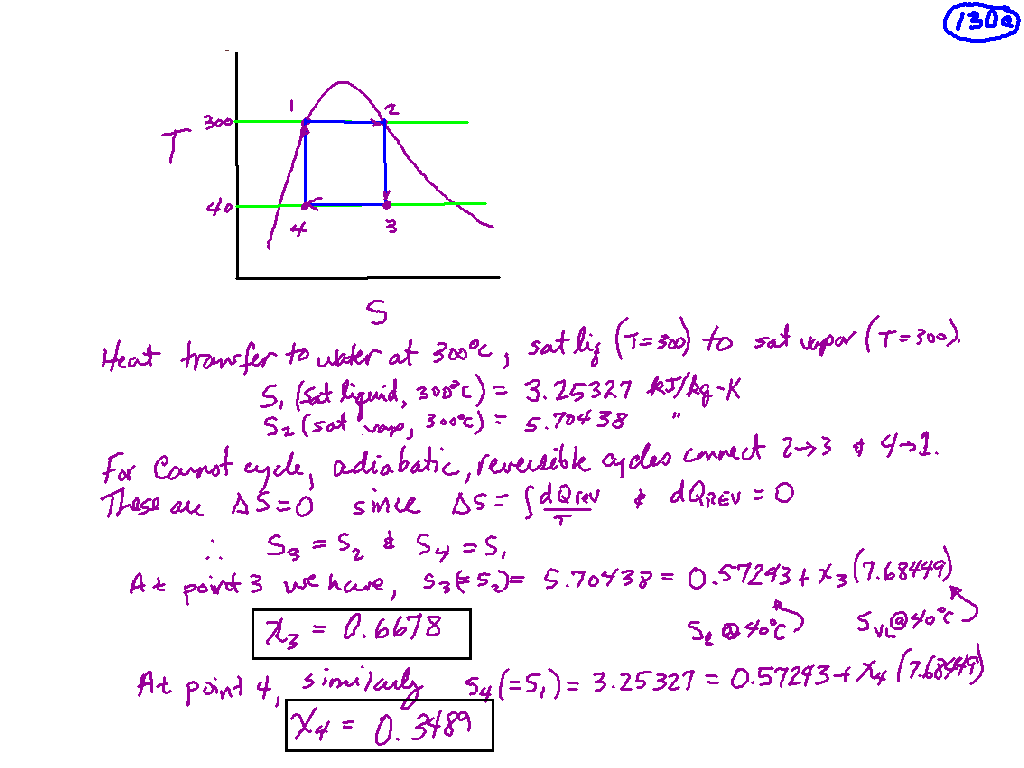 130a
1 2
300
T
40
4 3
S
Heat transfer to water at 300°C, sat liq (T=300) to sat vapor (T=300).
S₁ (sat liquid, 300°C) = 3.25327 kJ/kg-K
S₂ (sat vap, 300°C) = 5.70438 "
For Carnot cycle, adiabatic, reversible cycles connect 2→3 & 4→1.
These are ΔS=0 since ΔS= ∫dQrev/T & dQREV = 0
∴ S₃ = S₂ & S₄ = S₁
At point 3 we have, S₃(=S₂)= 5.70438 = 0.57243 + x₃(7.68449)
x₃ = 0.6678
Sℓ @ 40°C SVL@40°C
At point 4, similarly S₄(=S₁) = 3.25327 = 0.57243 + x₄(7.68449)
x₄ = 0.3489